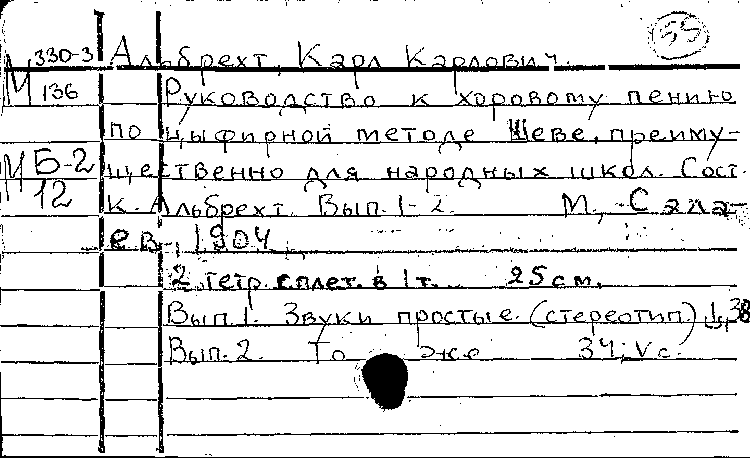 55
М 330-3 Альбрехт, Карл Карлович.
136 Руководство к хоровому пению
по цыфирной методе Шеве, преиму-
М Б-2 щественно для народных школ. Сост.
12 К. Альбрехт. Вып. 1-2. М., Сала-
ев, 1904.
2 тетр. сплет. в 1 т. 25 см.
Вып. 1. Звуки простые. (стереотип) 38
Вып. 2. То же 34, V с.